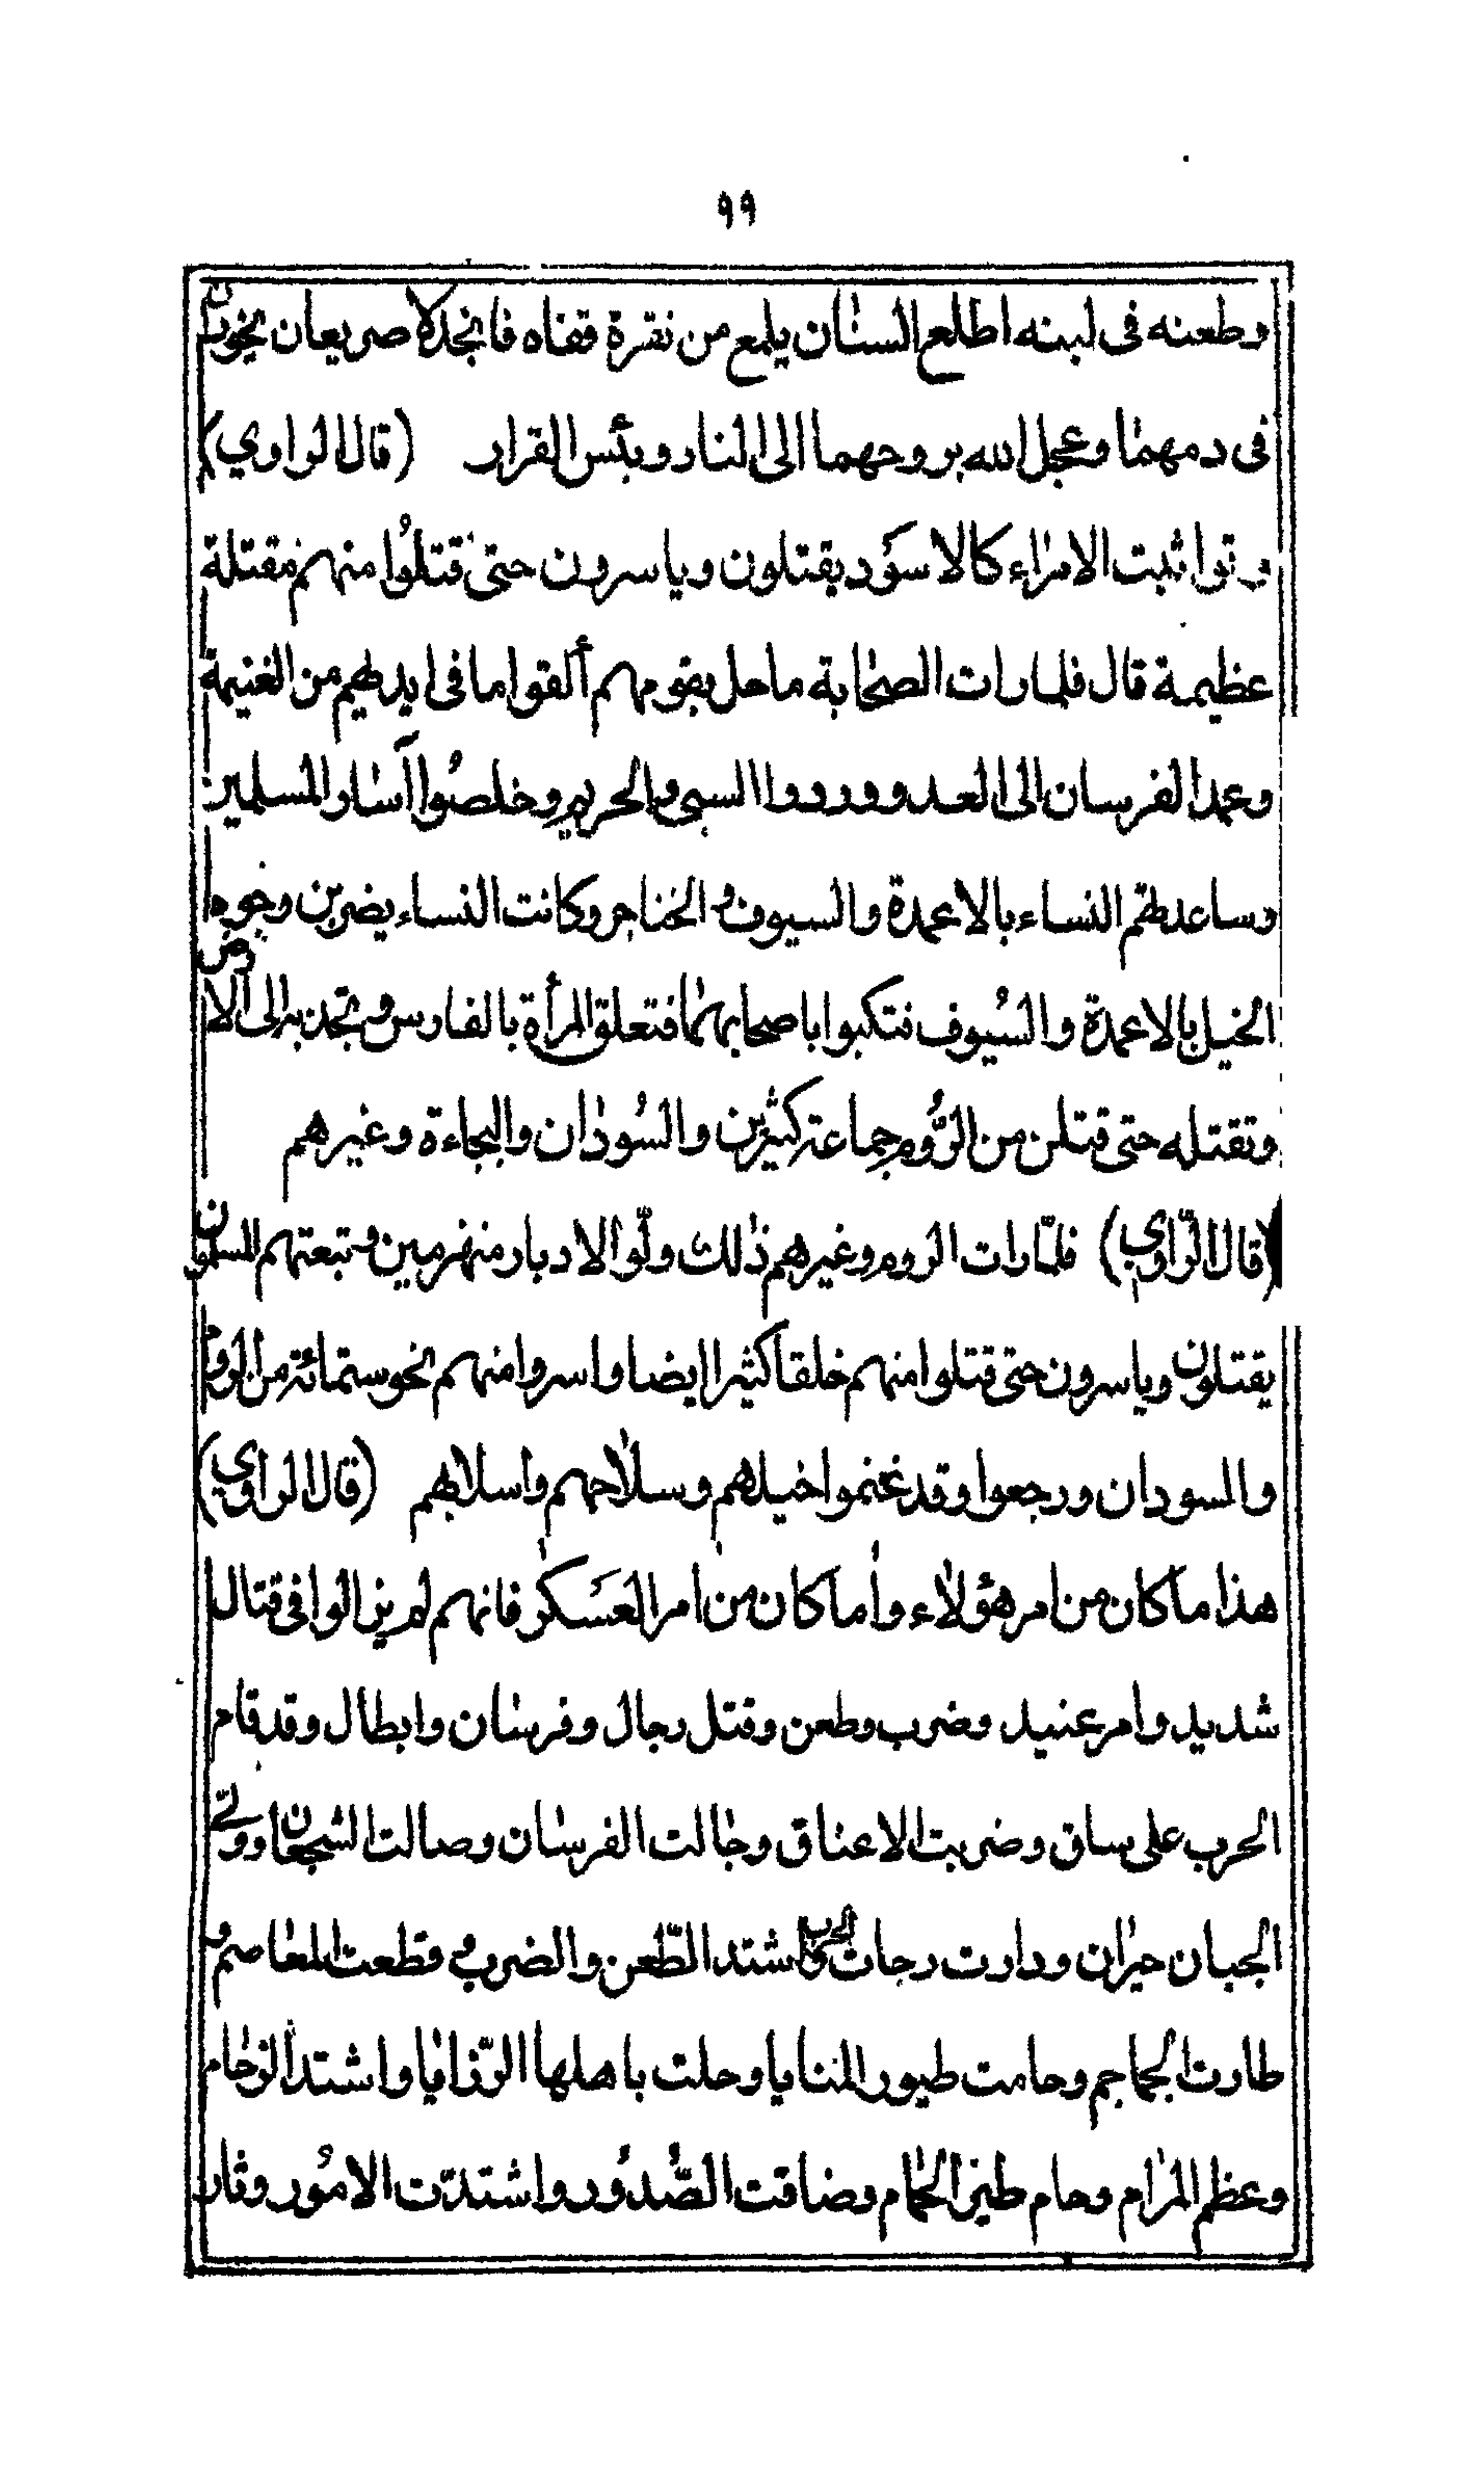 ٩٩
وطعنه فى لبنه اطلع السنان يلمع من نقرة قفاه فانجدلا صريعان يخوران
فى دمهما وعجل الله بروحهما الى النار وبئس القرار (قال الراوي)
وتواثبت الامراء كالاسود يقتلون وياسرون حتى قتلوا منهم مقتلة
عظيمة قال فلما رات الصحابة ماحل بقومهم ألقوا ما فى ايديهم من الغنيمة
وعمد الفرسان الى العدو وردوا السبى والحريم وخلصوا آسار المسلمين
وساعدهم النساء بالاعمدة والسيوف والخناجر وكانت النساء يضربن وجوه
الخيل بالاعمدة والسيوف فتكبوا باصحابها فتعلق المرأة بالفارس وتجذبه الى الارض
وتقتله حتى قتلن من الروم جماعة كثيرين والسودان والبجاءة وغيرهم
(قال الراوي) فلما رات الروم وغيرهم ذالك ولوا الادبار منهزمين وتبعتهم المسلمون
يقتلون وياسرون حتى قتلوا منهم خلقا كثيرا ايضا واسروا منهم نحو ستمائة من الروم
والسودان ورجعوا وقد غنموا خيلهم وسلاحهم واسلابهم (قال الراوي)
هذا ما كان من امر هؤلاء وأما كان من امر العسكر فانهم لم يزالوا فى قتال
شديد وامر عنيد وضرب وطعن وقتل رجال وفرسان وابطال وقد قام
الحرب على ساق وضربت الاعناق وجالت الفرسان وصالت الشجعان وولى
الجبان حيران ودارت رحات الحرب واشتد الطعن والضرب وقطعت المعاصم و
طارت الجماجم وحامت طيور المنايا وحلت باهلها الرزايا واشتد الزحام
وعظم المرام وحام طير الحمام وضاقت الصدور واشتدت الامور وثار